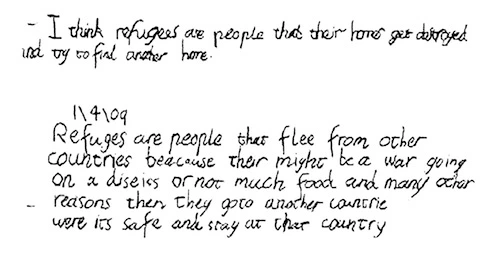 - I think refugees are people that their homes get destroyed
and try to find another home.
1\4\09
Refuges are people that flee from other
countries beacause their might be a war going
on a diseiss or not much food and many other
- reasons then they goto another countrie
were its safe and stay at that country